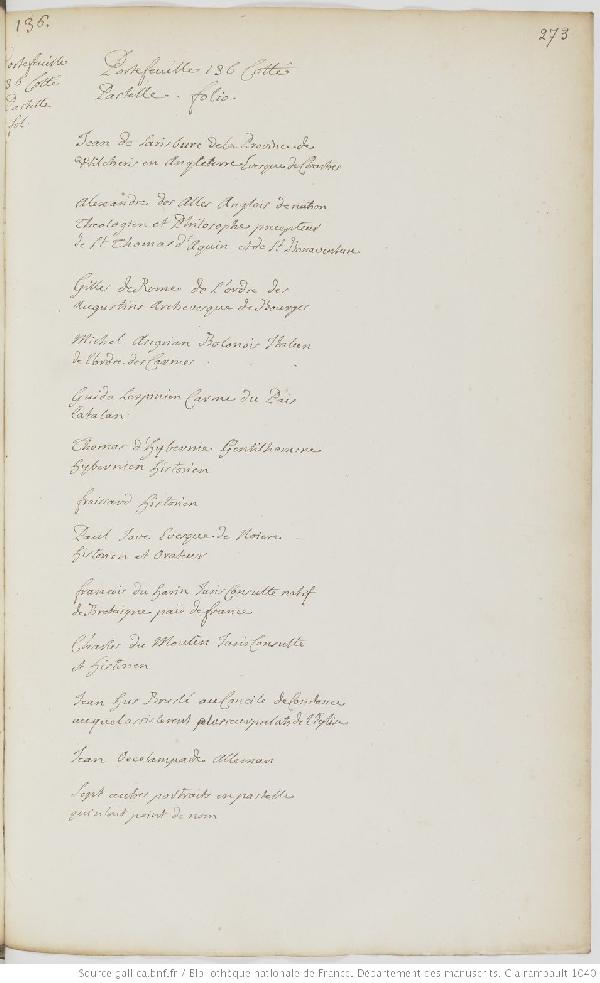 136.
273
Portefeuille
136 Cotté
Pastelle
fol.
Portefeuille 136 Cotté
Pastelle. folio.
Jean de Sarisbure de la Province de
Wilcheris en Angleterre Evesque de Chartres
Alexandre des Alles Anglois de nation
Theologien et Philosophe precepteur
de St Thomas d'Aquin et de St Bonaventure
Gilles de Rome de l'ordre des
Augustins Archevesque de Bourges
Michel Aignian Bolonois Italien
de l'ordre des Carmes
Guido Carme du Pais
Catalan
Thomas d'Hybernie Gentilhomme
hybernien historien
froissard historien
Paul Jove Evesque de
historien et orateur
francois du Jurisconsulte natif
de Bretaigne pais de france
Charles du Moulin Jurisconsulte
et historien
Jean Hus Bruslé au Concile de Constance
auquel assisterent plusieurs prelats de l'Eglise
Jean Oecolampade Alleman
Sept autres portraits en pastelle
qui n'ont point de nom
Source gallica.bnf.fr / Bibliothèque nationale de France. Département des manuscrits. Clairambault 1040